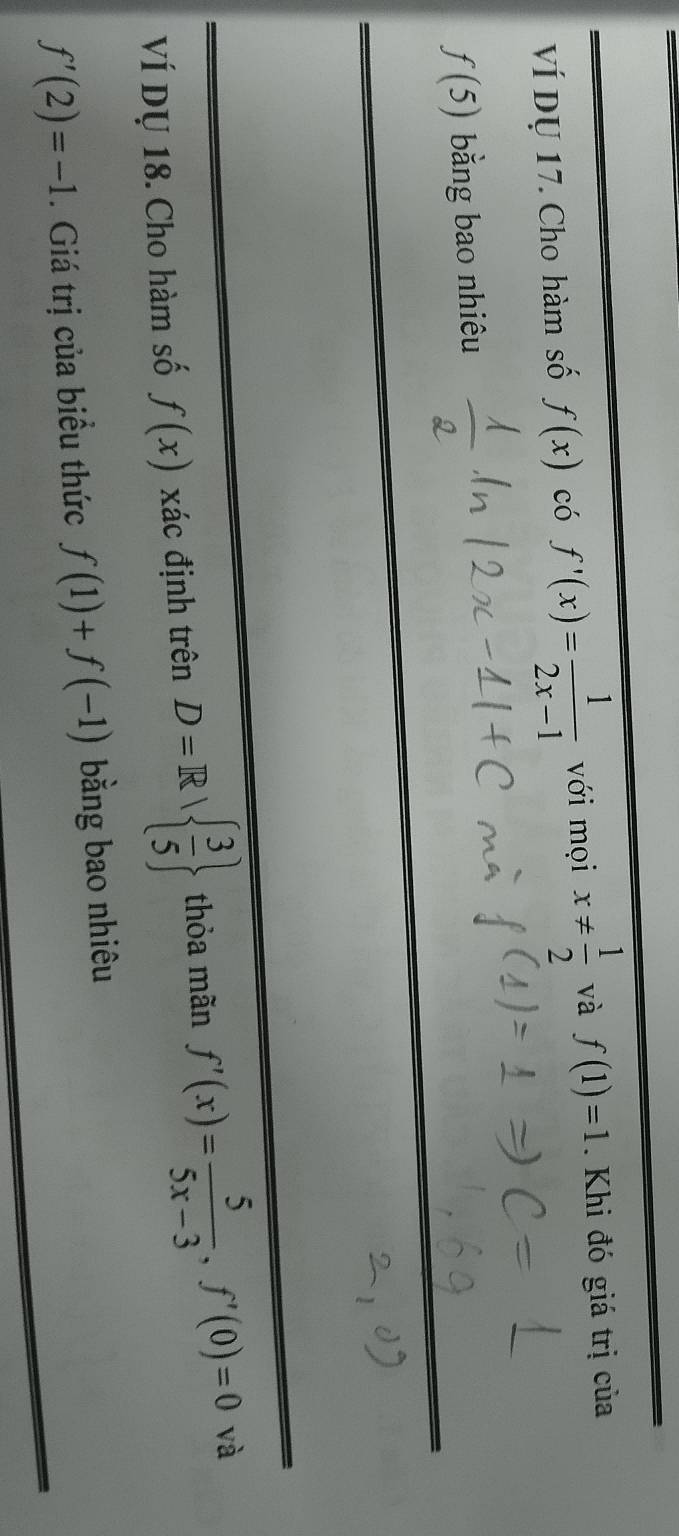 VÍ DỤ 17. Cho hàm số f(x) có f'(x)=1/(2x−1) với mọi x≠1/2 và f(1)=1. Khi đó giá trị của
f(5) bằng bao nhiêu
1/2 .ln|2x−1|+C mà f(1)=1 => C=1
,69
2,09
VÍ DỤ 18. Cho hàm số f(x) xác định trên D=ℝ\{3/5} thỏa mãn f'(x)=5/(5x−3), f'(0)=0 và
f'(2)=−1. Giá trị của biểu thức f(1)+f(−1) bằng bao nhiêu